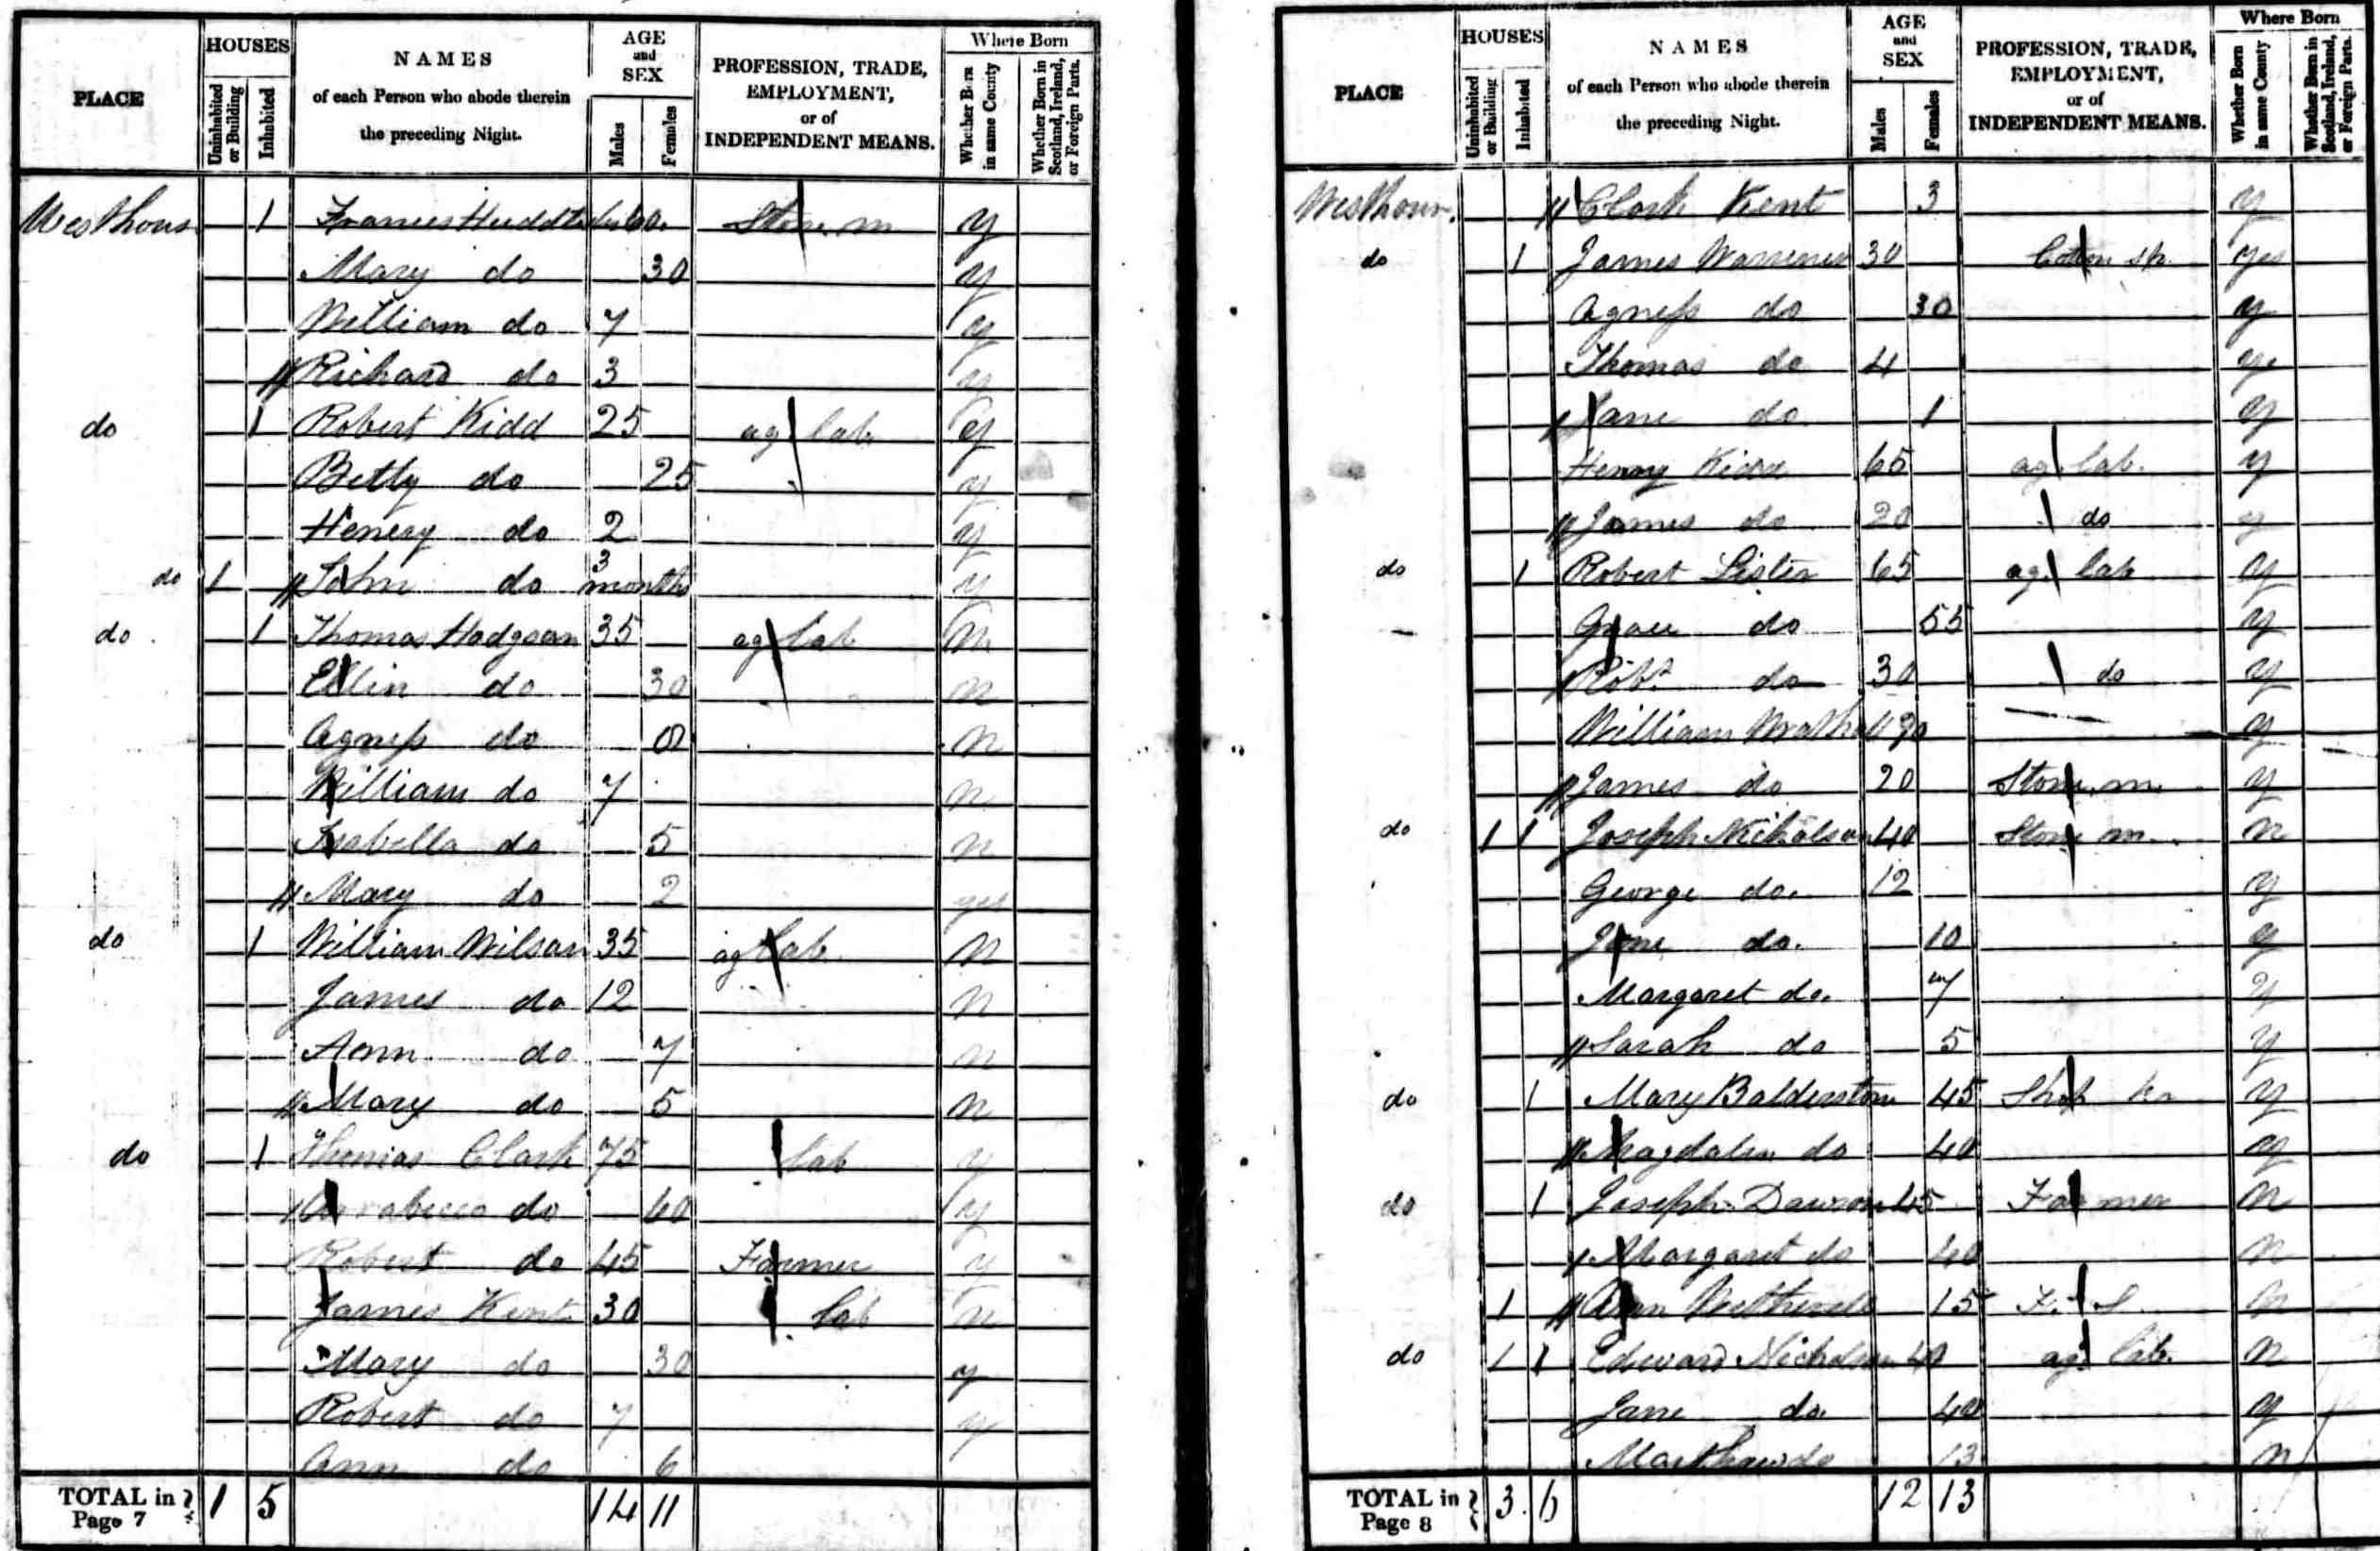 PLACE HOUSES Uninhabited or Building Inhabited NAMES of each Person who abode therein the preceding Night. AGE and SEX Males Females PROFESSION, TRADE, EMPLOYMENT, or of INDEPENDENT MEANS. Where Born Whether Born in same County Whether Born in Scotland, Ireland, or Foreign Parts.
Westhous 1 Frances 60 Stone m y
Mary do 30 y
William do 7 y
Richard do 3 y
do 1 Robert Kidd 25 ag lab y
Betty do 25 y
Henery do 2 y
do 1 John do 3 months y
do 1 Thomas Hodgson 35 ag lab n
Ellin do 30 n
Agness do n
William do 7 n
Isabella do 5 n
Mary do 2 yes
do 1 William Wilson 35 ag lab n
James do 12 n
Ann do 7 n
Mary do 5 n
do 1 Thomas Clark 75 lab y
do 60 y
Robert do 45 Farmer y
James Kent 30 lab n
Mary do 30 y
Robert do 7 y
Ann do 6
TOTAL in Page 7 1 5 14 11
PLACE HOUSES Uninhabited or Building Inhabited NAMES of each Person who abode therein the preceding Night. AGE and SEX Males Females PROFESSION, TRADE, EMPLOYMENT, or of INDEPENDENT MEANS. Where Born Whether Born in same County Whether Born in Scotland, Ireland, or Foreign Parts.
Clark Kent 3 y
do 1 James Warrener 30 Cotton sp. yes
Agness do 30 y
Thomas do 4 y
Jane do 1 y
Henry Kidd 65 ag lab. y
James do 20 do y
do 1 Robert Lister 65 ag lab y
Grace do 55 y
Robt do 30 do y
William y
James do 20 Stone m. y
do 1 1 Joseph Nicholson 40 Stone m. n
George do. 12 y
Jane do. 10 y
Margaret do. 7 y
Sarah do 5 y
do 1 Mary Balderston 45 Shop y
Magdalen do 40 y
do 1 Joseph Dawson 45 Farmer n
Margaret do 40 n
1 Ann 15 F. S n
do 1 1 Edward Nicholson 40 ag lab. n
Jane do. 40 y
do 13 n
TOTAL in Page 8 3. 6 12 13